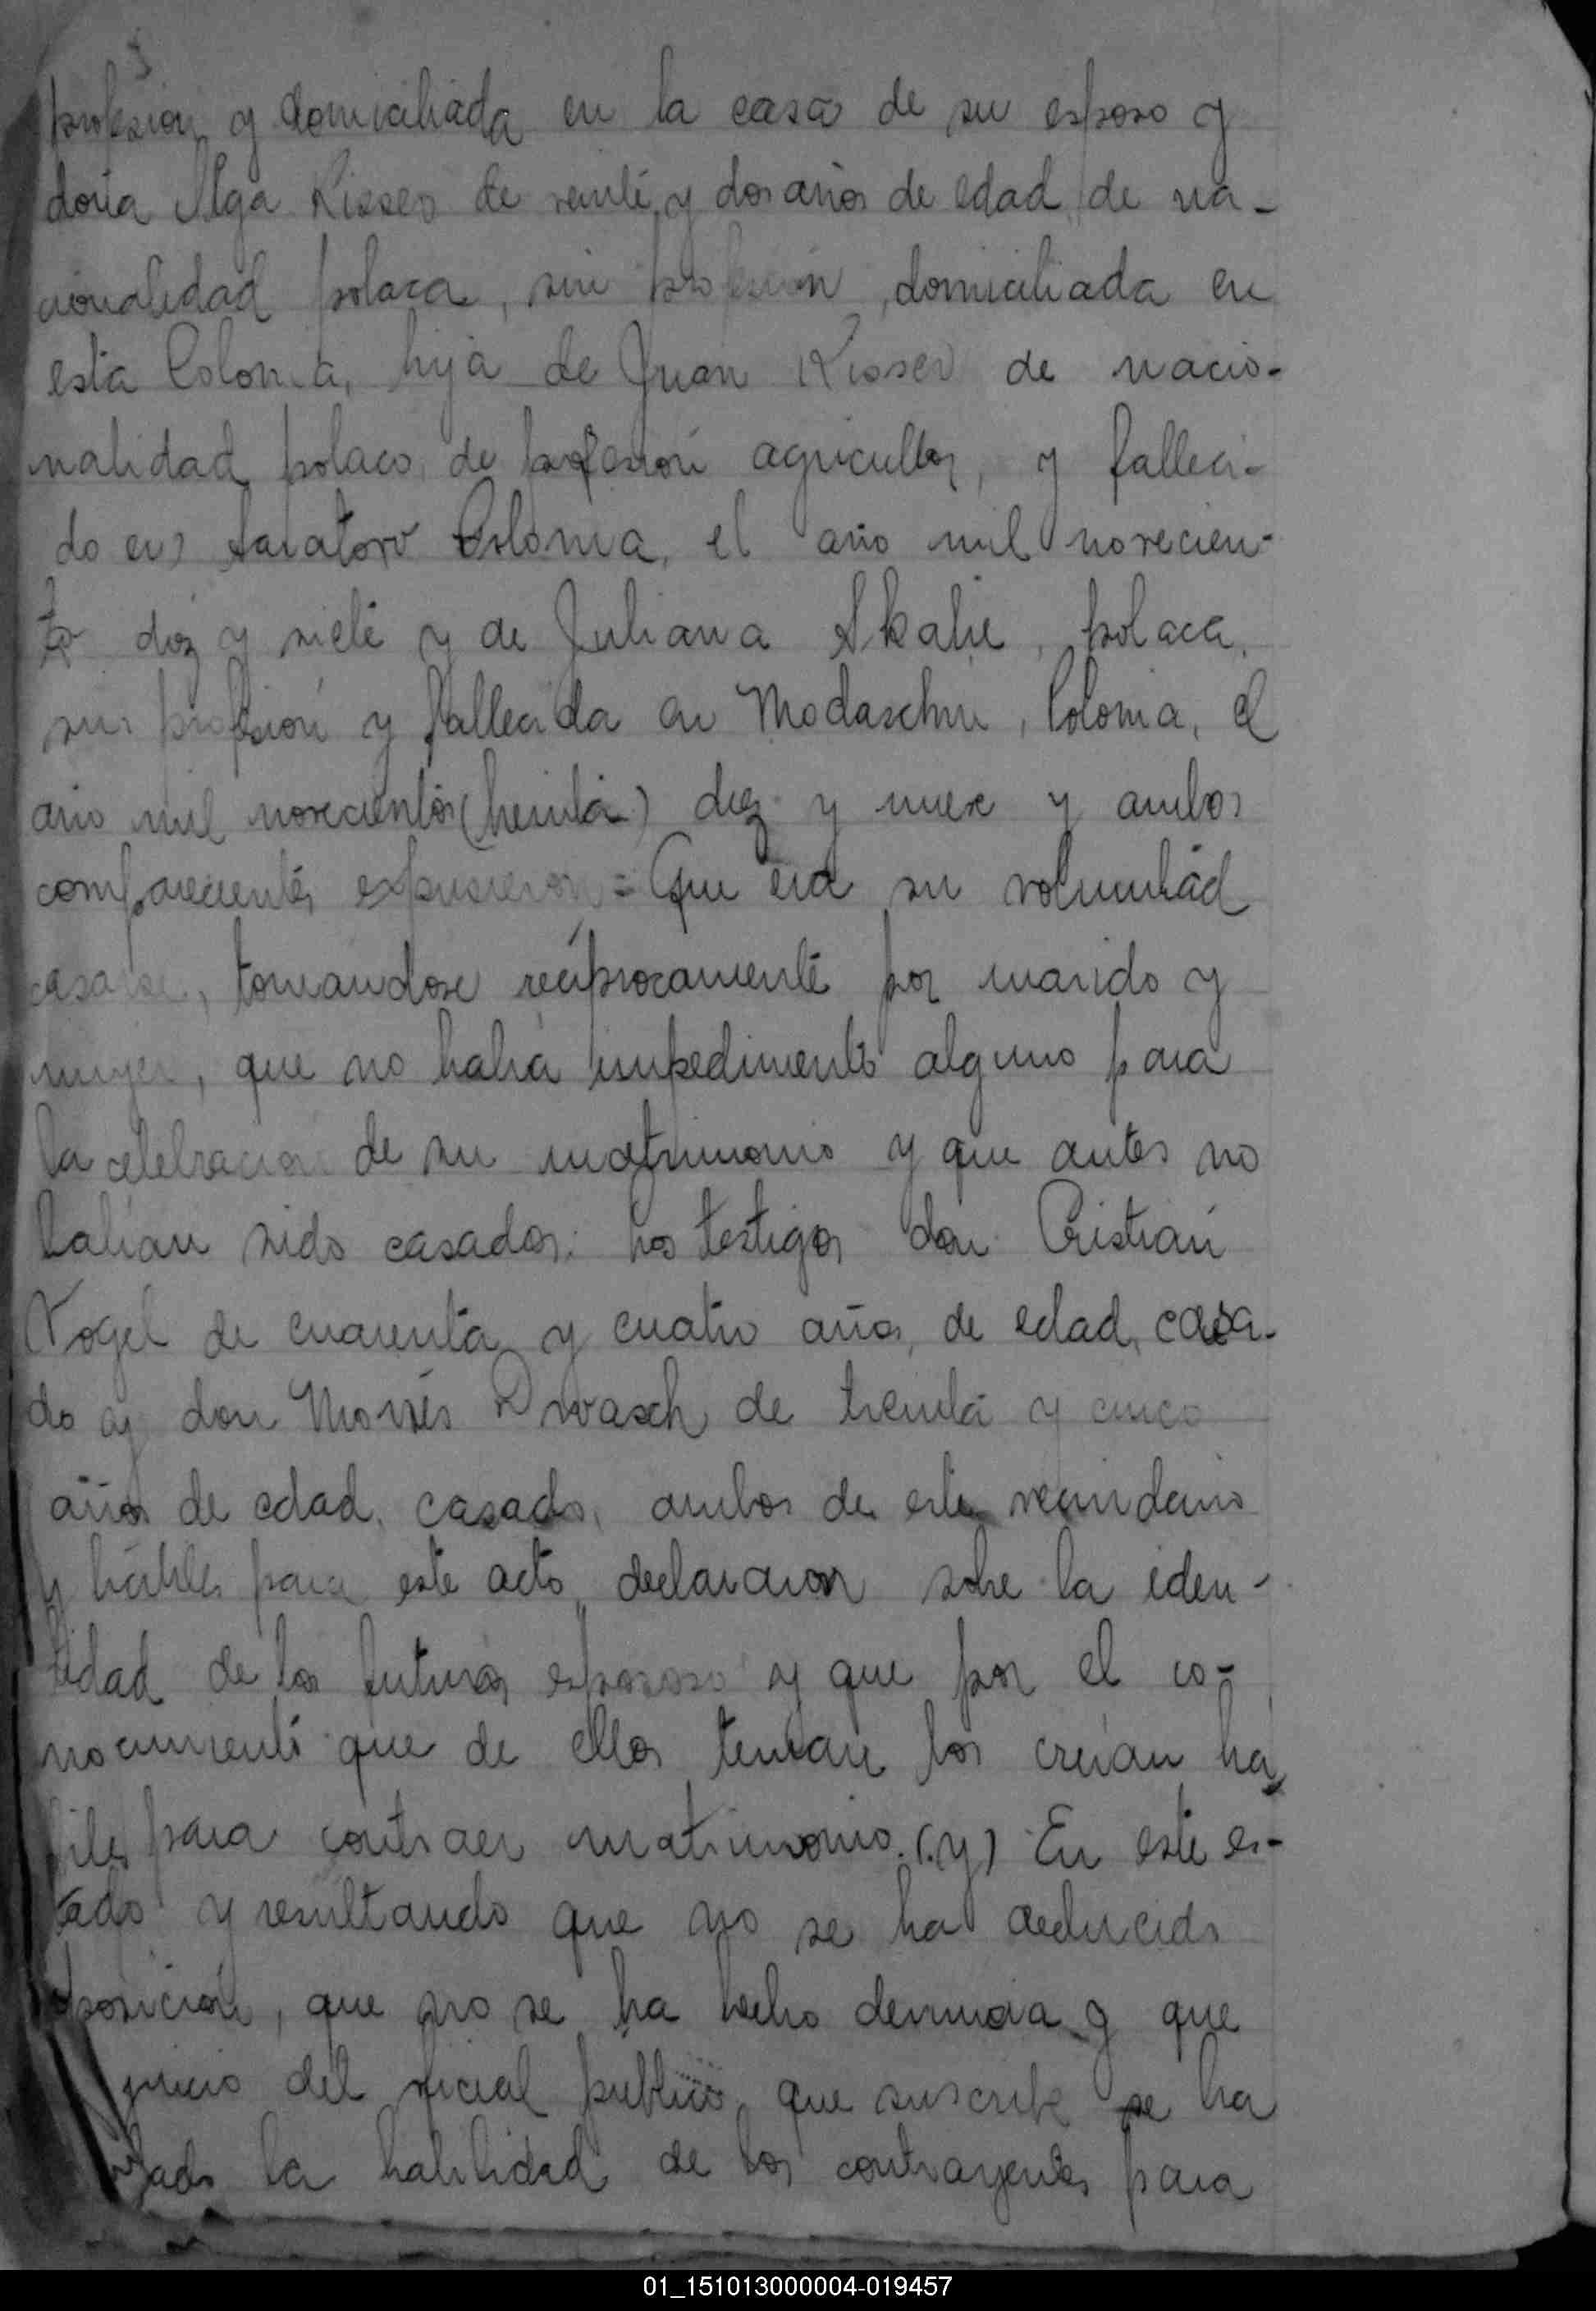 profesion y domiciliada en la casa de su esposo y
doña Olga Risser de veinte y dos años de edad, de na-
cionalidad polaca, sin profesión, domiciliada en
esta Colonia, hija de Juan Risser de nacio-
nalidad polaco, de profesión agricultor, y falleci-
do en Saratorv Polonia, el año mil novecien-
to diez y siete y de Juliana Skalie, polaca,
sin profesión y fallecida en Modaschin, Polonia, el
año mil novecientos (treinta) diez y nueve y ambos
comparecientes expusieron = Que era su voluntad
casarse, tomandose recíprocamente por marido y
mujer, que no habia impedimento alguno para
la celebracion de su matrimonio y que antes no
habian sido casados. Los testigos don Cristián
Vogel de cuarenta y cuatro años, de edad, casa-
do y don Moisés Drwasch de treinta y cinco
años de edad, casado, ambos de este vecindario
y hábiles para este acto, declararon sobre la iden-
tidad de los futuros esposos y que por el co-
nocimiento que de ellos tenian los creian há
biles para contraer matrimonio. (.y) En este es-
tado y resultando que no se ha deducido
oposición, que no se ha hecho denuncia y que
juicio del oficial publico que suscribe se ha
la habilidad de los contrayentes para
01_151013000004-019457